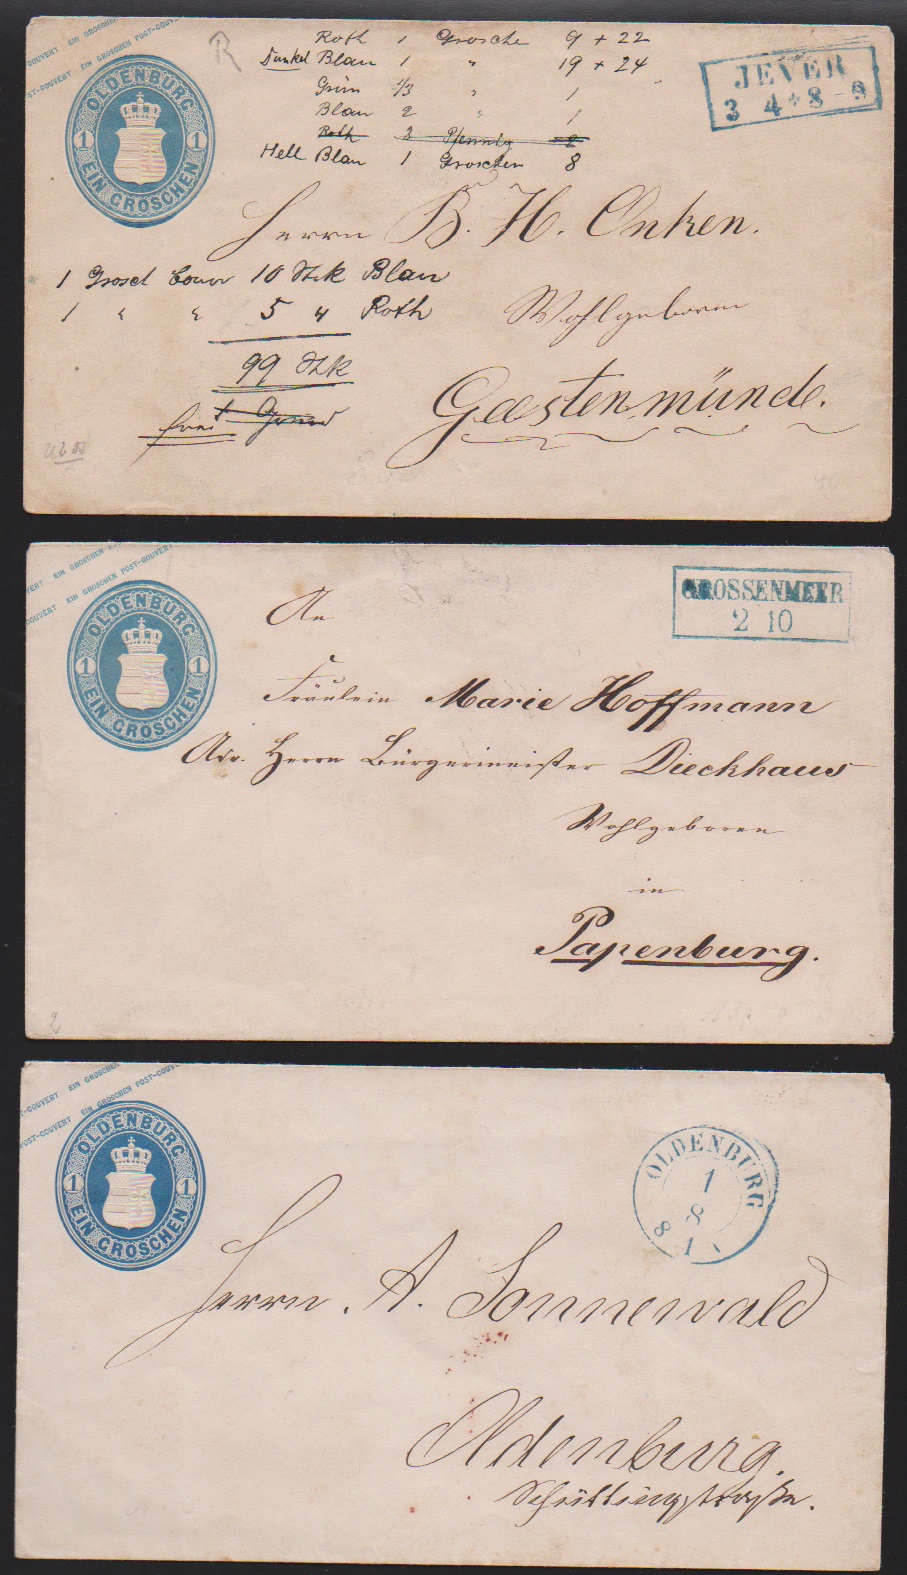 POST-COUVERT EIN GROSCHEN POST-COUV
ST-COUVERT EIN GROSCHEN POST-COUVERT
OLDENBURG
1 1
EIN GROSCHEN
R
Roth 1 Grosche 9 + 22
Dunkel Blau 1 " 19 + 24
Grün 1/3 " 1
Blau 2 " 1
Roth 3 Pfennig 2
Hell Blau 1 Groschen 8
JEVER
3 4 * 8 - 9
Herrn B. H. Onken.
1 Grosch Couv 10 Stk Blau
1 " " 5 " Roth
Wohlgeboren
99 Stk
frei
Geestenmünde.
VERT EIN GROSCHEN
OUVERT EIN GROSCHEN POST-COUVERT
OLDENBURG
1 1
EIN GROSCHEN
GROSSENMEER
2 10
An
Fräulein Marie Hoffmann
Adr. Herrn Bürgermeister Dieckhaus
Wohlgeboren
in
Papenburg.
2
T-COUVERT EIN GROSCHEN
POST-COUVERT EIN GROSCHEN POST-COUV
OLDENBURG
1 1
EIN GROSCHEN
OLDENBURG
1
8
8 - 1
Herrn A. Sonnewald
Oldenburg.
Schüttingstraße.